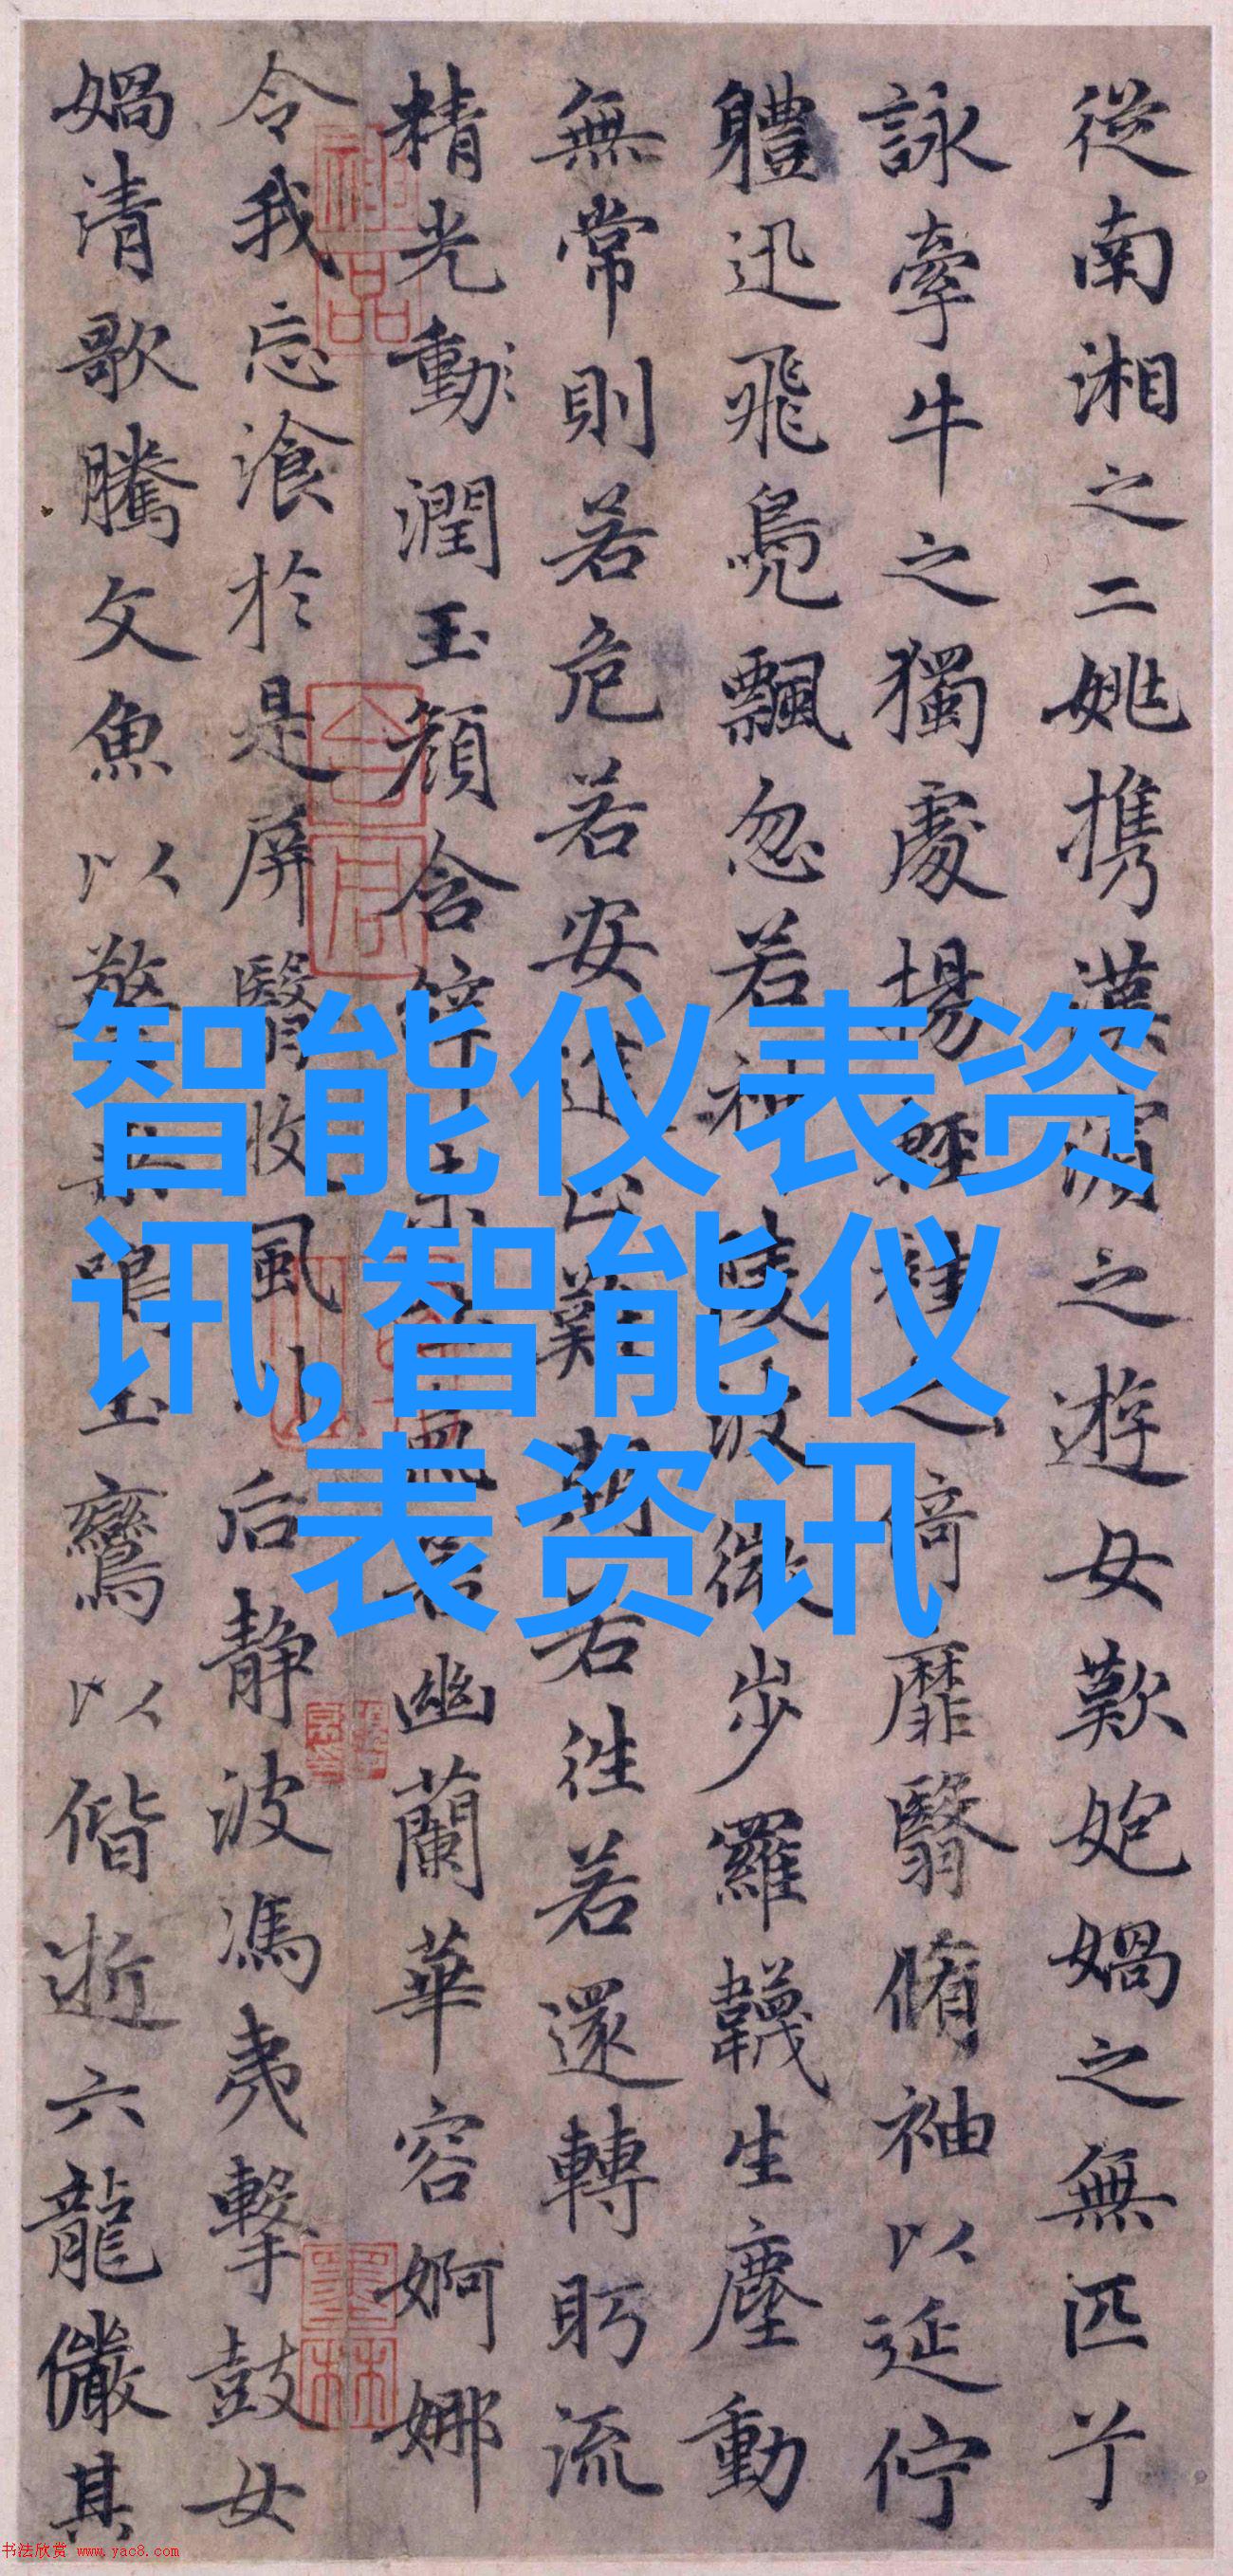 從南湘之二姚携漢濱之遊女歎㚿媧之無匹兮
詠牽牛之獨處揚輕袿之倚靡翳脩袖以延佇
軆迅飛鳧飄忽若神陵波微步羅韈生塵動
無常則若危若安進止難期若往若還轉眄流
精光動潤玉顏含辞未吐氣若幽蘭華容婀娜
令我忘飡於是屏翳收風川后静波馮夷擊鼓女
媧清歌騰文魚以警乘鳴玉鸞以偕逝六龍儼其
神品
墨林
智能仪表资
讯,智能仪
表资讯
书法欣赏 www.yac8.com